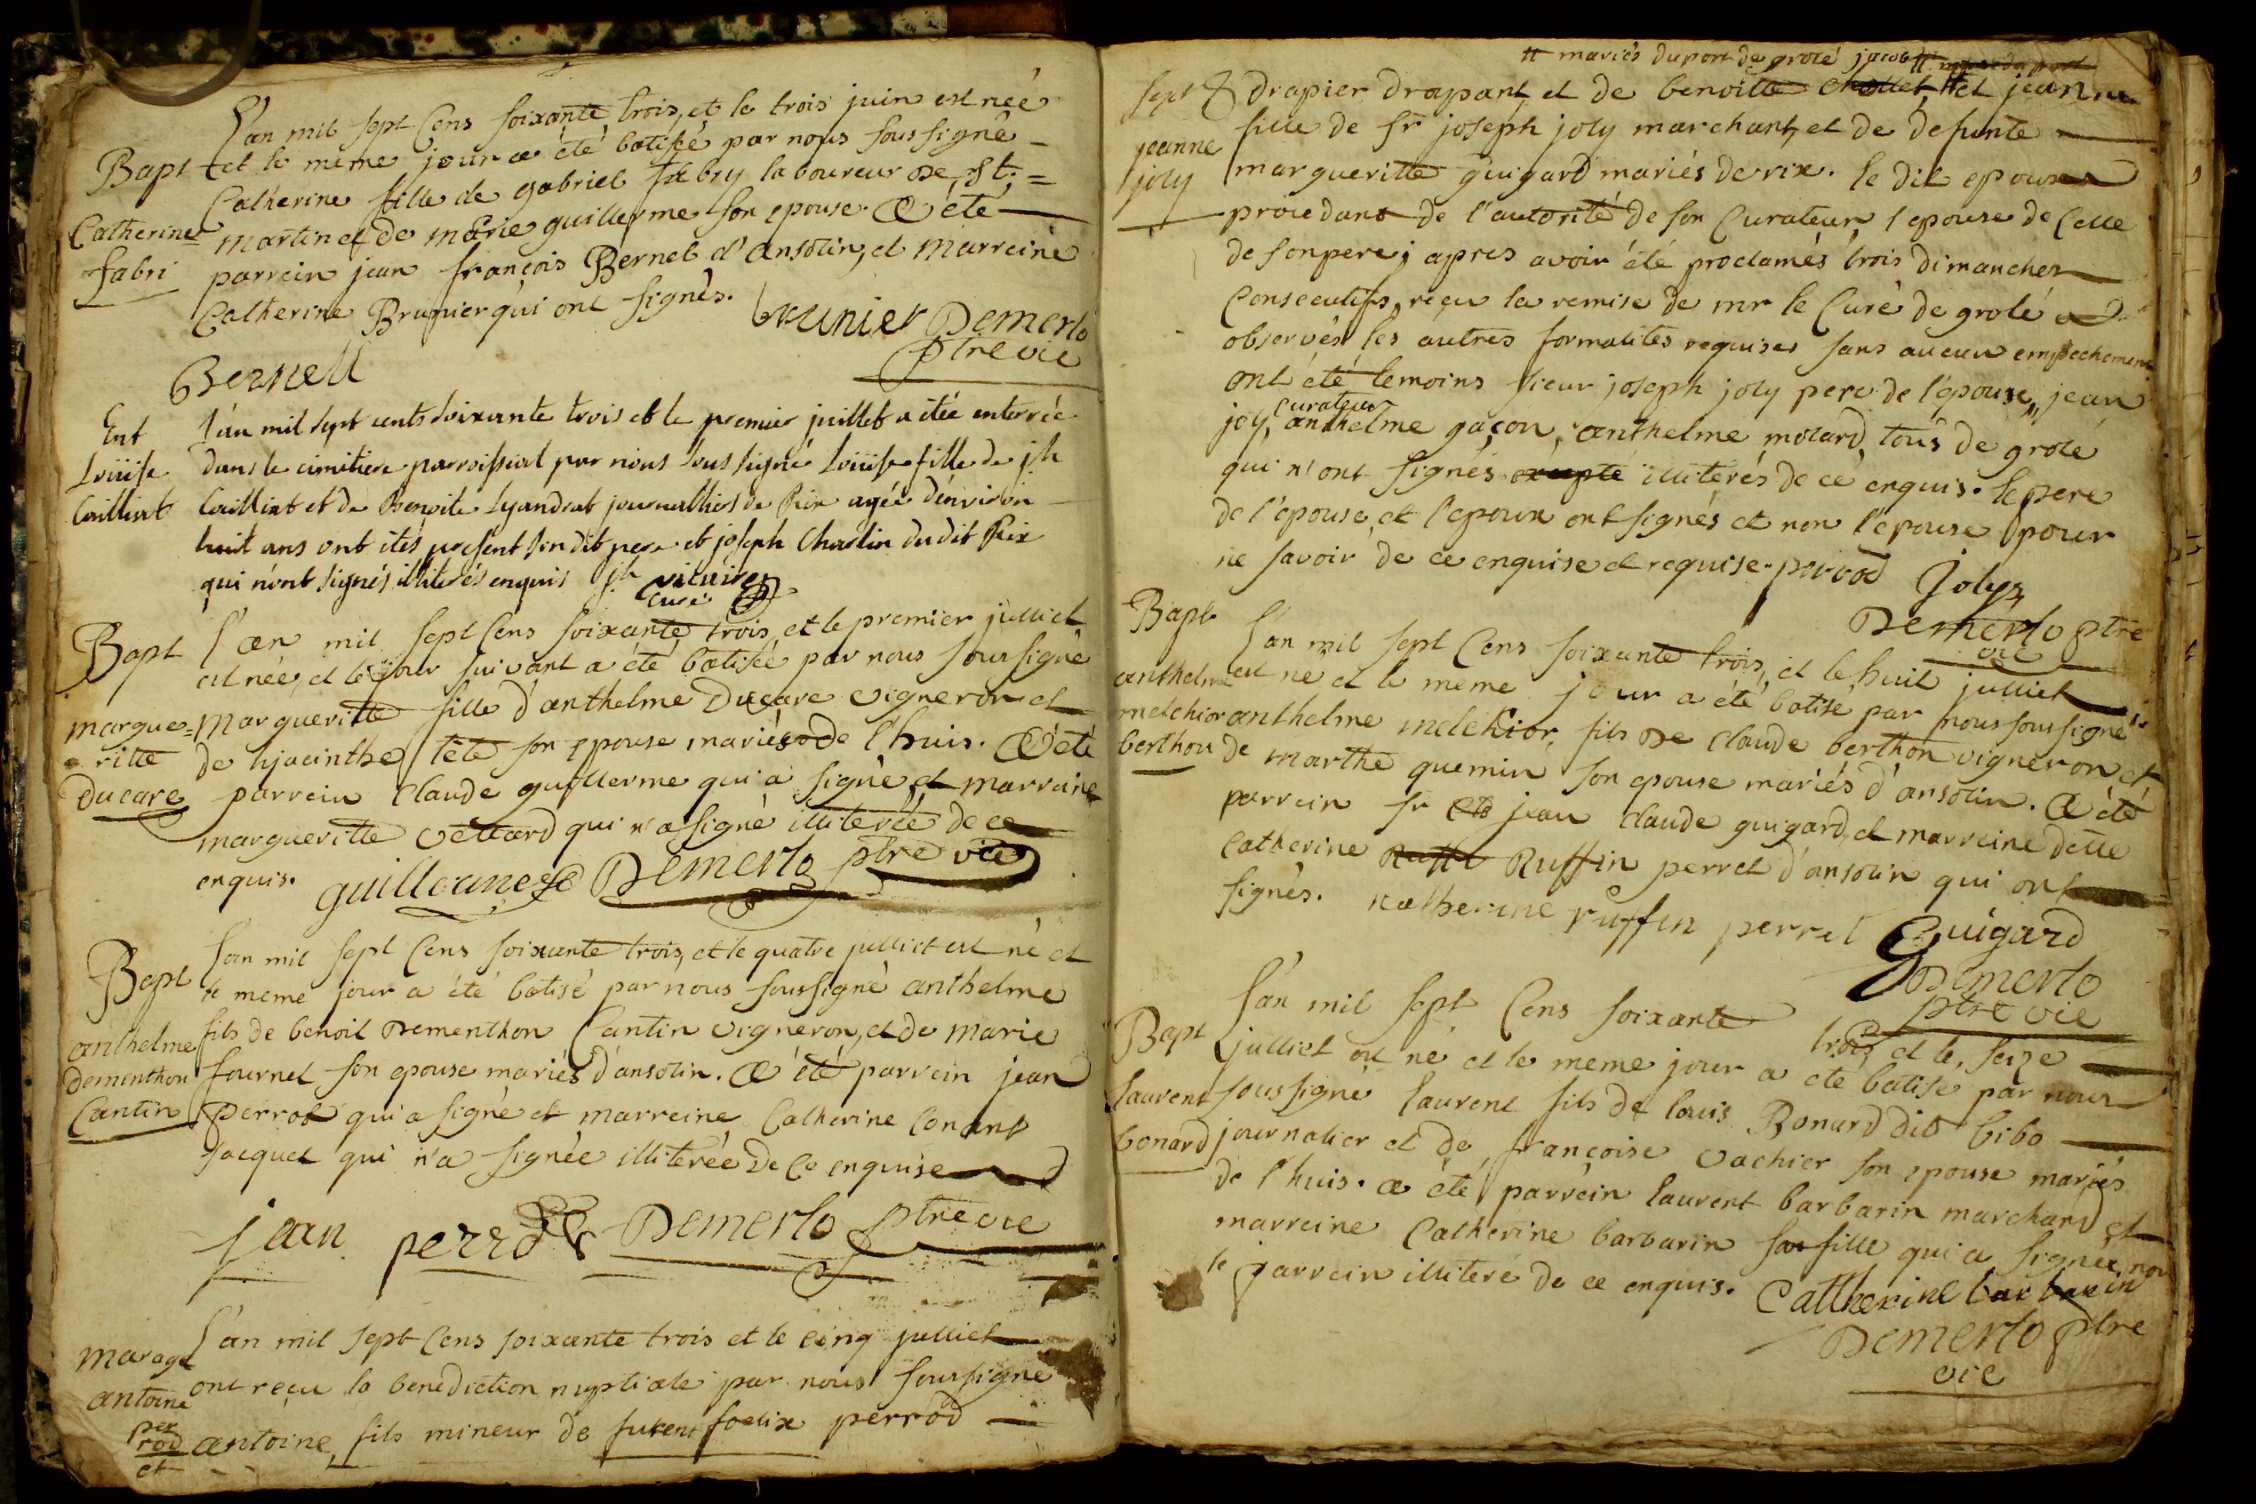 L'an mil sept cens soixante trois, et le trois juin est née
Bapt et le même jour a été batisée par nous soussigné
Catherine fille de gabriel fabry laboureur de st. =
Catherine martin et de marie guillerme son epouse. A été
fabri parrein jean françois Bernet d'ansolin, et marreine
Catherine Brunier qui ont signés.
brunier Demerlo
ptre vic
Bernell
Ent L'an mil sept cents soixante trois et le premier juillet a étée enterrée
Loüise dans le cimitiere parroissial par nous sous signé Loüise fille de jh
Cailliat Cailliat et de Benoite Lyandrat journalliers de Rix agée d'environ
huit ans ont étés present son dit pere et joseph Charlin du dit Rix
qui n'ont signés illiterés enquis jh
curé
Bapt L'an mil sept cens soixante trois, et le premier julliet
est née, et le jour suivant a été batisée par nous soussigné
margue= margueritte fille d'anthelme Ducare vigneron et
ritte de hjacinthe tête son epouse mariés de l'huis. A été
Ducare parrein Claude guillerme qui a signé et marreine
margueritte vettard qui n'a signé illiterée de ce
enquis. guillerme Demerlo ptre vic
L'an mil sept cens soixante trois, et le quatre julliet est né et
Bapt le meme jour a été batisé par nous soussigné anthelme
anthelme fils de benoit Dementhon Cantin vigneron, et de marie
dementhon fournel son epouse mariés d'ansolin. A été parrein jean
Cantin perrod qui a signé et marreine Catherine Conand
Jacquet qui n'a signée illiterée de ce enquise
jean perrod Demerlo ptre vic
L'an mil sept cens soixante trois et le cinq julliet
marage ont reçu la benediction nuptiale par nous soussigné
antoine
per
rod antoine, fils mineur de furent foelix perrod
et
# mariés du port de grolé jacob
sept drapier drapant, et de benoitte Chollet # et jeanne
fille de sr joseph joly marchant, et de defunte
jeanne margueritte guigard mariés de rix. le dit epoux
joly procedant de l'autorité de son Curateur, l'epouse de Celle
de son pere; apres avoir été proclamés trois dimanches
Consecutifs, reçu la remise de mr le Curé de grolé
observés les autres formalités requises sans aucun empechement
ont été temoins sieur joseph joly pere de l'epouse, jean
curateur
joly, anthelme gaçon, anthelme molard, tous de grolé
qui n'ont signés excepté illiterés de ce enquis. le pere
de l'épouse, et l'epoux ont signés et non l'épouse pour
ne savoir de ce enquise et requise. perrod Joly
Demerlo ptre
vic
Bapt L'an mil sept cens soixante trois, et le huit julliet
anthelme est né et le meme jour a été batisé par nous soussigné
melchior anthelme melchior, fils de claude berthon vigneron et
berthon de marthe quemin son epouse mariés d'ansolin. A été
parrein sr jean claude guigard, et marreine dette
catherine Ruffi Ruffin perret d'ansolin qui ont
signés. katherine ruffin perret Guigard
Demerlo
ptre vic
L'an mil sept cens soixante trois et le, seize
Bapt julliet est né et le meme jour a été batisé par nous
laurent soussigné laurent fils de louis Bonard dit bibo
bonard journalier et de françoise vachier son epouse mariés
de l'huis. a été parrein laurent barbarin marchand et
marreine Catherine barbarin sa fille qui a signée, non
le parrein illiteré de ce enquis. Catherine barbarin
Demerlo ptre
vic